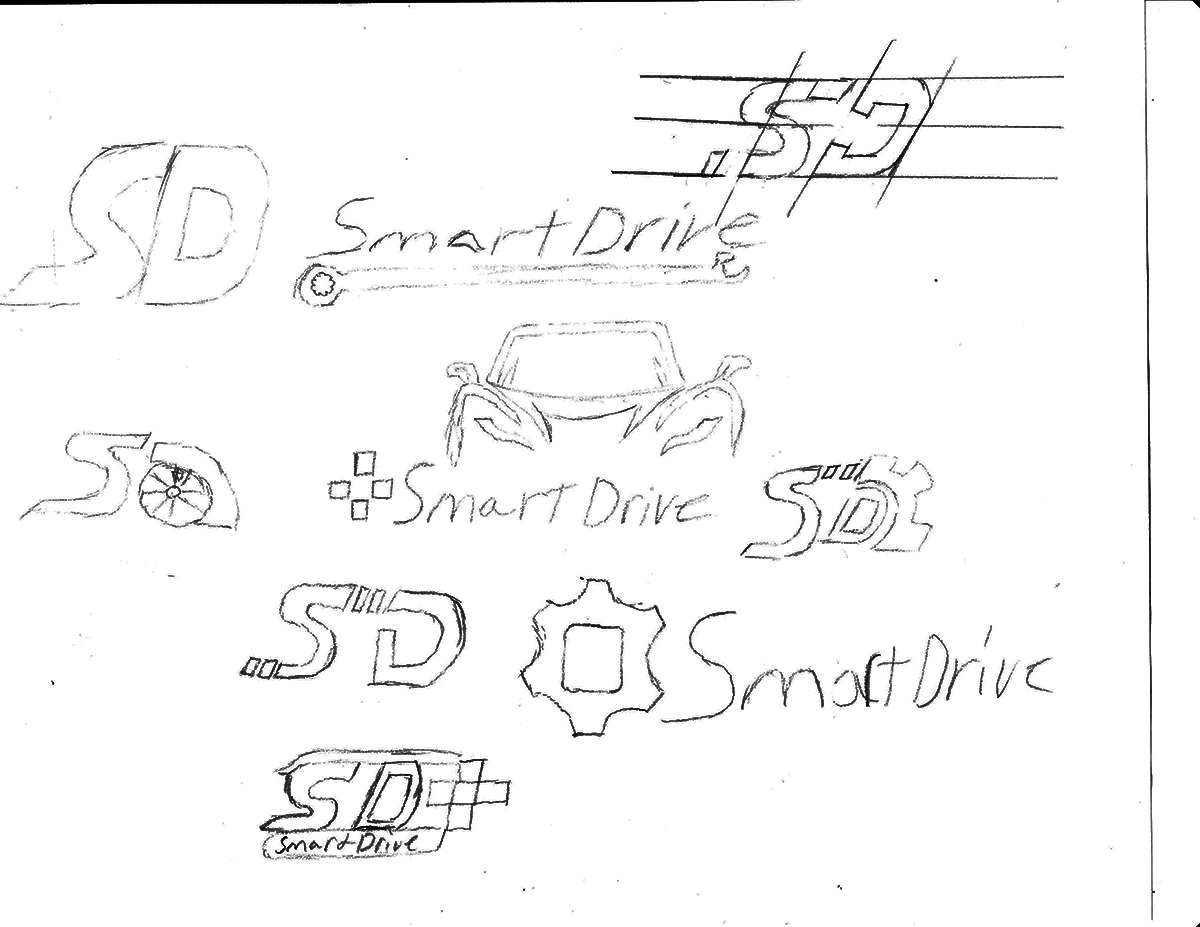 SD
SD
SmartDrive
SD
SmartDrive
SD
SD
SmartDrive
SD
SmartDrive